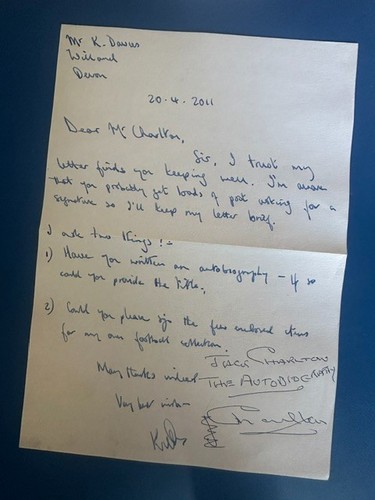 Mr K. Davies
Willand
Devon
20-4-2011
Dear Mr Charlton,
Sir, I trust my
letter finds you keeping well. I'm aware
that you probably get loads of post asking for a
signature so I'll keep my letter brief.
I ask two things!:-
1) Have you written an autobiography - if so
could you provide the title.
2) Could you please sign the few enclosed items
for my own football collection.
Many thanks indeed
JACK CHARLTON
THE AUTOBIOGRAPHY
Very best wishes
Charlton